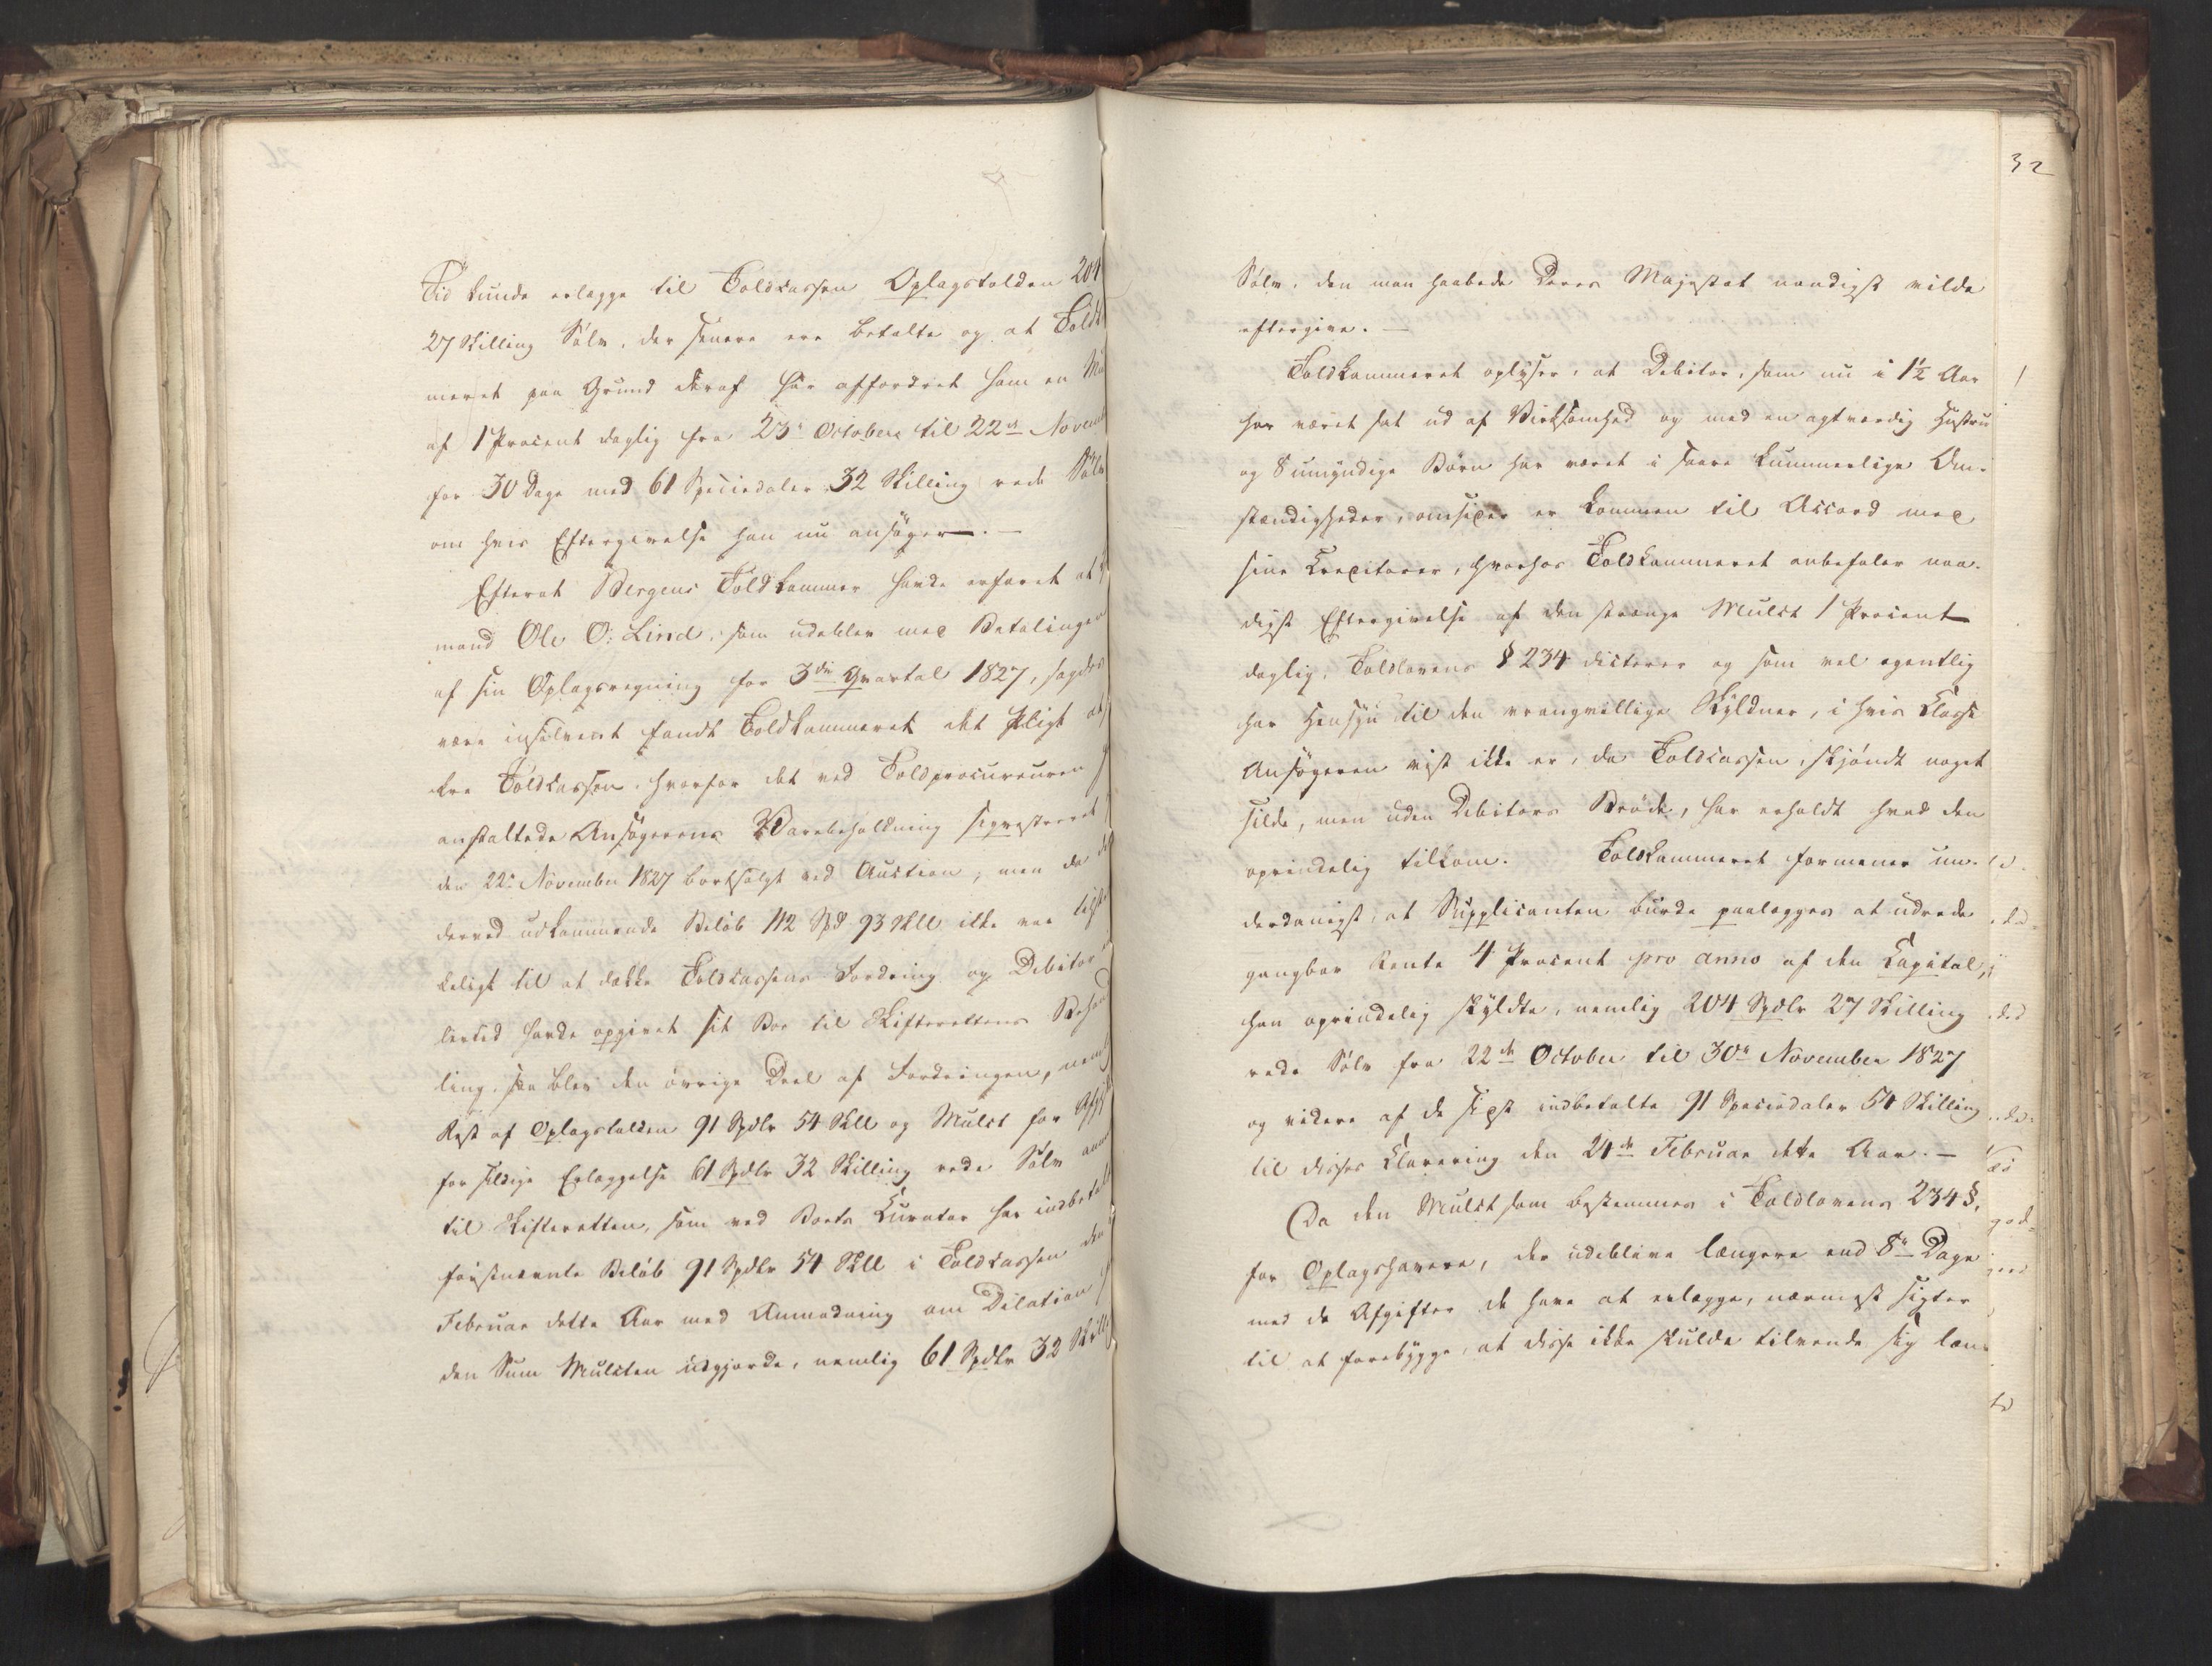 Tid kunde erlægge til Toldcassen Oplagstolden 204
27 Skilling Sølv, der senere ere betalte og at Toldk
meret paa Grund deraf har affordret ham en Mu
af 1 Procent daglig fra 23de October til 22de Novemb
for 30 Dage med 61 Speciedaler 32 Skilling rede Sølv
om hvis Eftergivelse han nu ansøger. —
Efterat Bergens Toldkammer havde erfaret at
mand Ole O: Lind, som udeblev med Betalingen
af sin Oplagsregning for 3die Qvartal 1827, sagdes
være insolvent fandt Toldkammeret det Pligt at
kre Toldcassen, hvorfor det ved Toldprocureuren
anstaltede Ansøgerens Varebeholdning seqvestreret
den 22de November 1827 bortsolgt ved Auction; men da de
derved udkommende Beløb 112 Spd 93 Skll ikke var tilst
keligt til at dække Toldcassens Fordring og Debitor
lertid havde opgivet sit Boe til Skifterettens Behand
ling, saa blev den øvrige Deel af Fordringen, neml
Rest af Oplagstolden 91 Spdlr 54 Skll og Mulct for Afgif
for sildige Erlæggelse 61 Spdlr 32 Skilling rede Sølv anm
til Skifteretten, som ved Boets Curator har indbetalt
førstnævnte Beløb 91 Spdlr 54 Skll i Toldcassen den
Februar dette Aar med Anmodning om Dilation
den Sum Mulcten udgjorde, nemlig 61 Spdlr 32 Skill
32
Sølv, den man haabede Deres Majestæt naadigst vilde
eftergive. —
Toldkammeret oplyser, at Debitor, som nu i 1½ Aar
har været sat ud af Virksomhed og med en agtværdig Hustru
og 8 umyndige Børn har været i saare kummerlige Om-
stændigheder, omsider er kommen til Accord med
sine Creditorer, hvorhos Toldkammeret anbefaler naa-
digst Eftergivelse af den strænge Mulct 1 Procent
daglig, Toldlovens § 234 dicterer og som vel egentlig
har Hensyn til den vrangvillige Skyldner, i hvis Classe
Ansøgeren vist ikke er, da Toldcassen, skjøndt noget
silde, men uden Debitors Brøde, har erholdt hvad den
oprindelig tilkom. Toldkammeret formener un-
derdanigst, at Supplicanten burde paalægges at udrede
gangbar Rente 4 Procent pro anno af den Capital,
han oprindelig skyldte, nemlig 204 Spdlr 27 Skilling
rede Sølv fra 22de October til 30te November 1827
og videre af de sidst indbetalte 91 Speciedaler 54 Skilling
til disses Clarering den 24de Februar dette Aar. —
Da den Mulct som bestemmes i Toldlovens 234 §,
for Oplagshavere, der udeblive længere end 8te Dage
med de Afgifter de have at erlægge, nærmest sigter
til at forebygge, at disse ikke skulde tilvende sig læn-